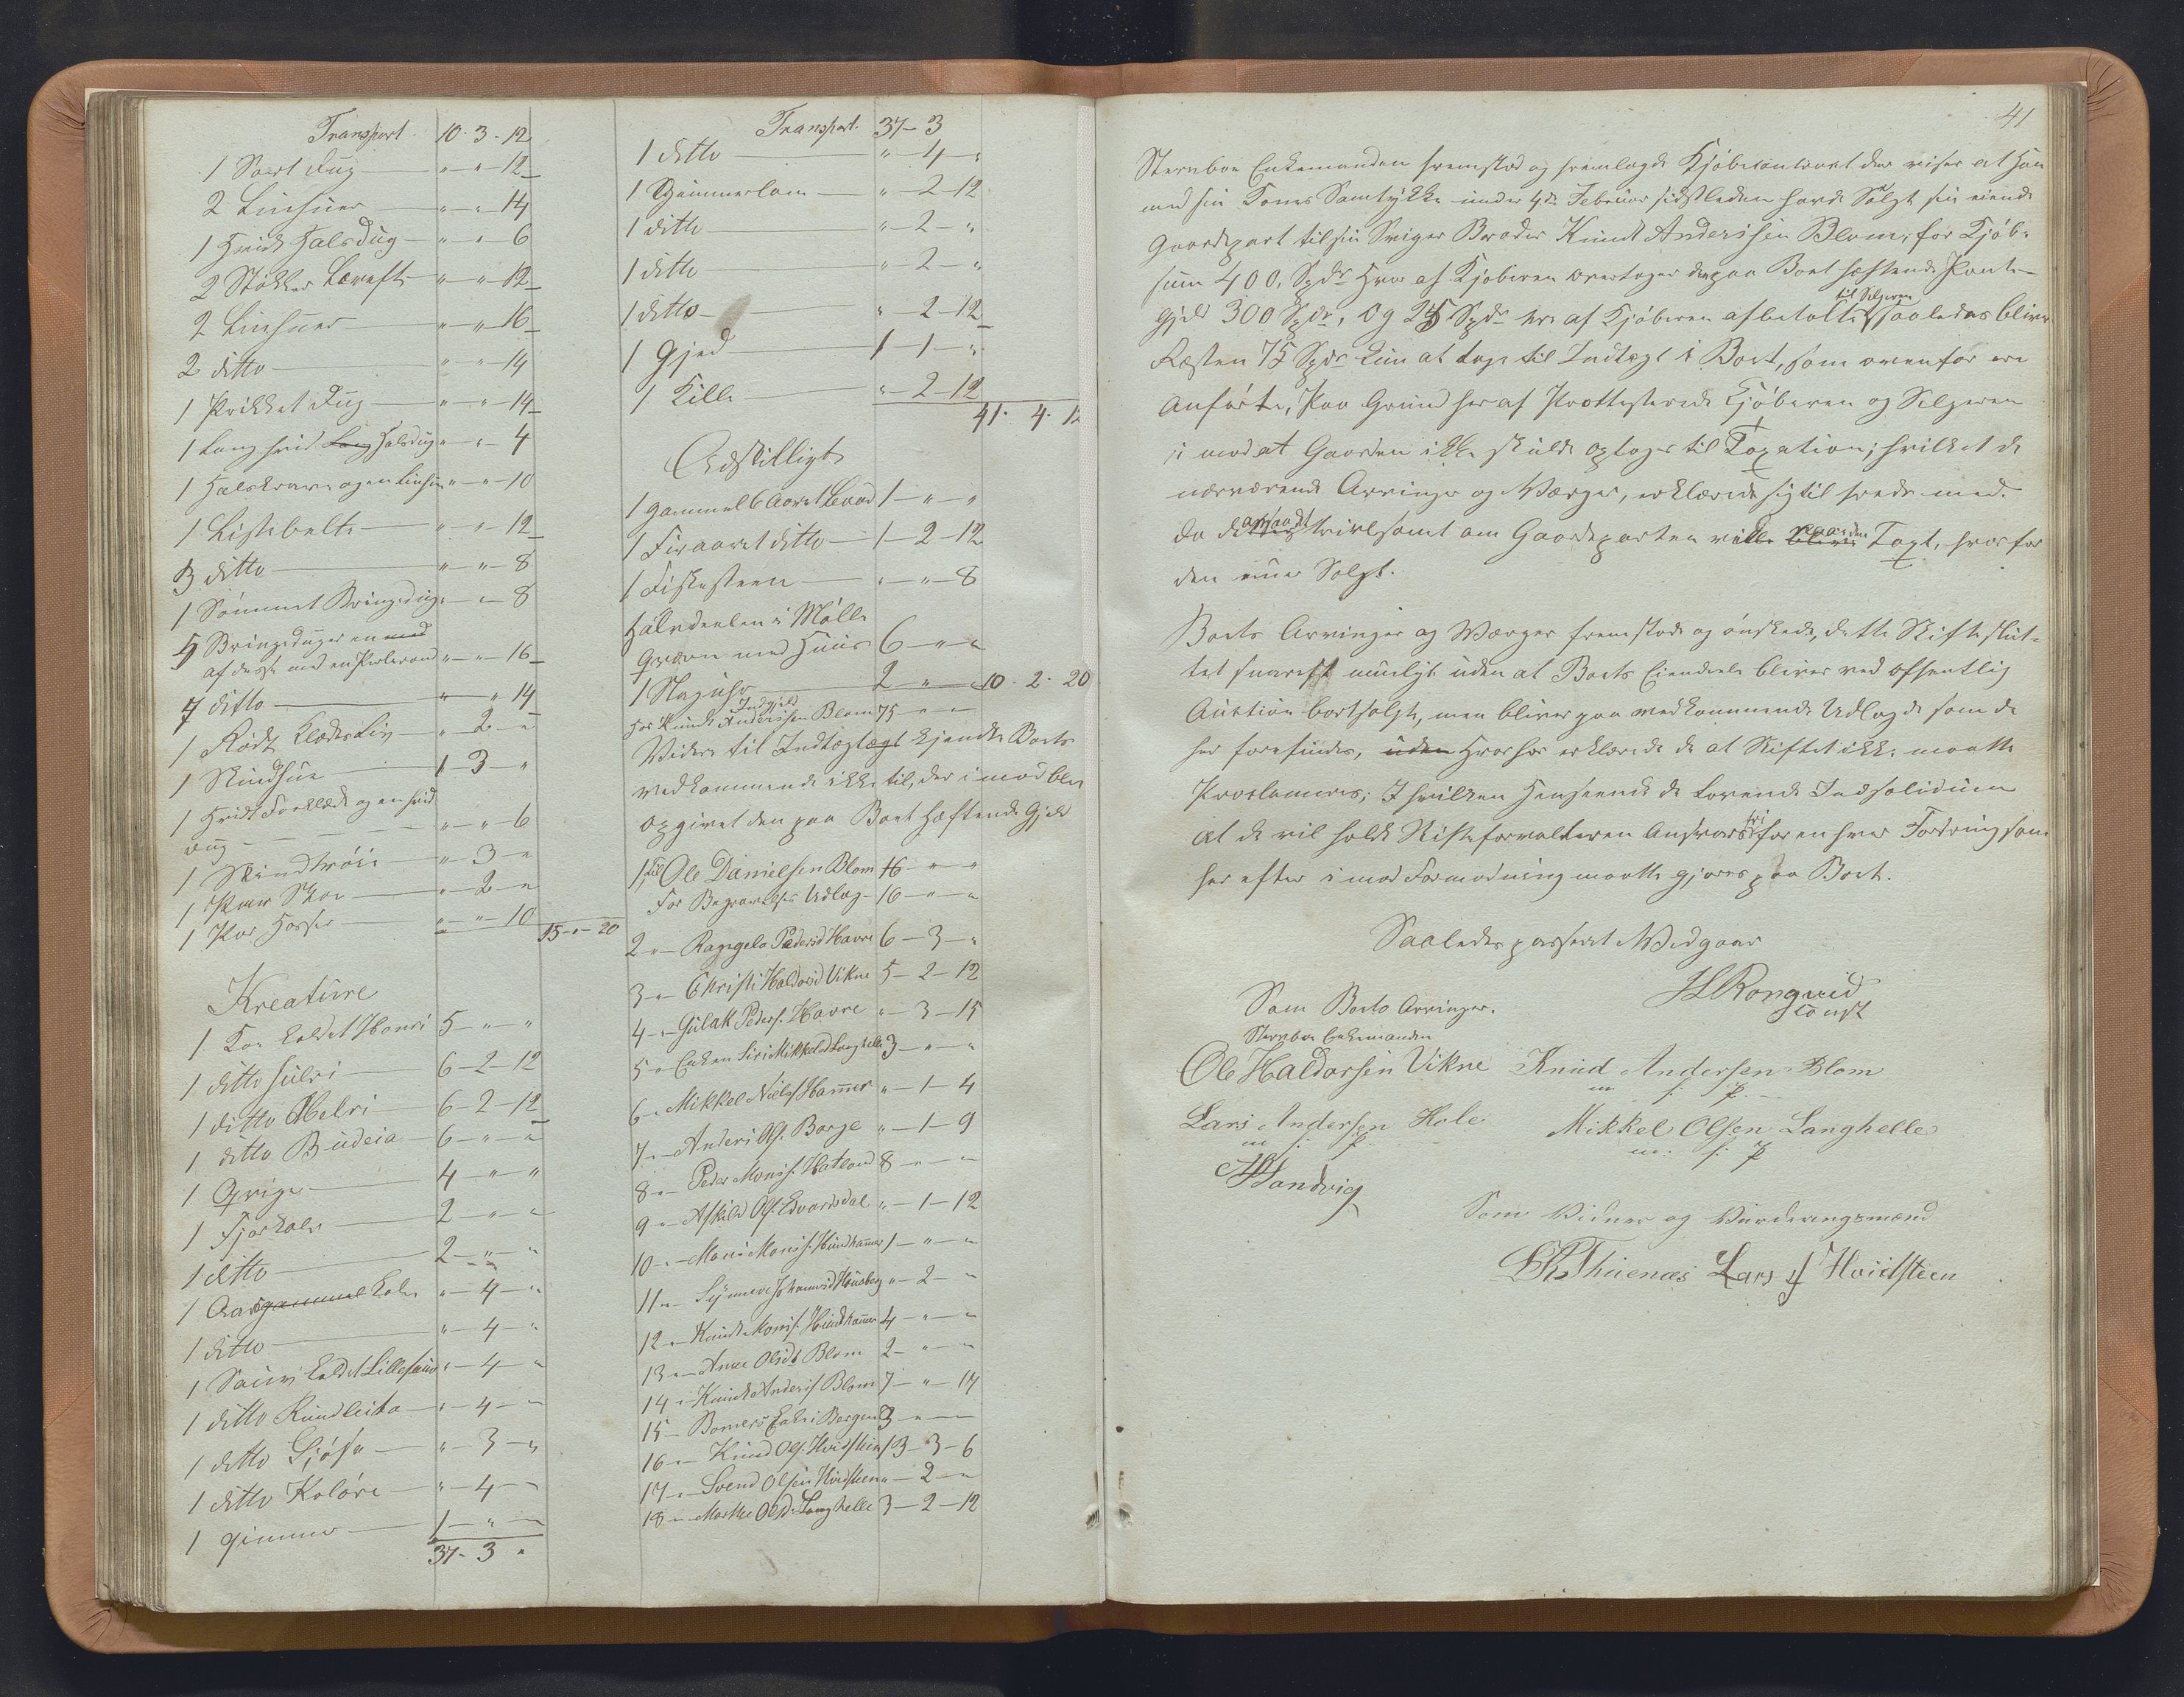 Transport 10 - 3 - 12
1 Sort Dug " - " - 12
2 Linhuer " - " - 14
1 Hvidt Halsdug " - " - 6
2 Støkker Lereft " - " - 12
2 Linhuer " - " - 16
2 ditto " - " - 14
1 Prikket Dug " - " - 14
1 Lang hvid Lang Halsdug " - " - 4
1 Halskrave og en Linhue " - " - 10
1 Listebelte " - " - 12
3 ditto " - " - 8
1 Sømmet Bringedug " - " - 8
5 Bringeduger en med
af desse med en Perlerand " - " - 16
7 ditto " - " - 14
1 Rødt Klædesliv " - 2 - "
1 Skindhue 1 - 3 - "
1 Hvidt Forklæde og en hvid
Dug " - " - 6
1 Skindtrøie " - 3 - "
1 Paar Skoe " - 2 - "
1 Par Hoser " - " - 10
15 - " - 20
Kreature
1 Koe kaldet Honri 5 - " - "
1 ditto Julri 6 - 2 - 12
1 ditto Helri 6 - 2 - 12
1 ditto Budeia 6 - " - "
1 Qvige 4 - " - "
1 Fjorkalv 2 - " - "
1 ditto 2 - " - "
1 Aars gammel Kalv " - 4 - "
1 ditto " - 4 - "
1 Souv kaldet Lillesouv " - 4 - "
1 ditto Rundleita " - 4 - "
1 ditto Gjøsa " - 3 - "
1 ditto Koløre " - 4 - "
1 gimmer 1 - " - "
37 - 3 "
Transport 37 - 3
1 ditto " - 4 - "
1 Gimmerlam " - 2 - 12
1 ditto " - 2 - "
1 ditto " - 2 - "
1 ditto " - 2 - 12
1 Gjed 1 - 1 - "
1 Kille " - 2 - 12
41 - 4 - 12
Adskilligt
1 gammel 6 Aaret Baad 1 - " - "
1 Firaaret ditto 1 - 2 - 12
1 Fiskesteen " - " - 8
Halvdeelen i Mølle
Qværn med Huus 6 - " - "
1 Slaguhr 2 - " - " 10 - 2 - 20
Indgjeld
hos Knudt Andersen Blom 75 - " - "
Videre til Indtægtlægt kjendte Boets
vedkommende ikke til, der i mod blev
opgivet den paa Boet Hæftende Gjeld
1, til Ole Danielsen Blom 16 - " - "
For Begravelses Udlag 16 - " - "
2 " Raggela Pedersd Havre 6 - 3 - "
3 " Christi Haldorsd Vikne 5 - 2 - 12
4 " Gulak Peders. Havre " - 3 - 15
5 " Enken Siri Mikkelsd Langhelle 3 - " - "
6 " Mikkel Niels. Hamer " - 1 - 4
7 " Anders Ols. Borge " - 1 - 9
8 " Peder Monss. Hatland 8 - " - "
9 " Askild Ols. Edvardsdal " - 1 - 12
10 " Mons Monss. Hundhamer 1 - " - "
11 " Synneve Johannesd Husberg " - 2 - "
12 " Knudt Monss. Hundhamer 4 - " - "
13 " Anne Olsdt Blom 2 - " - "
14 " Knudt Anders Blom 7 - " - 14
15 " Bomers Enke i Bergen 3 - " - "
16 " Knud Ols. Hvidsteen 13 - 3 - 6
17 " Svend Olsen Hvidsteen " - 2 - "
18 " Marthe Olsd Langhelle 3 - 2 - 12
41
Stervboe Enkemanden fremstod og fremlagde Kjøbecontract der viser at han
med sin Kones Samtykke under 4de Februar sidstleden havde Solgt sin eiende
Gaardepart til sin Sviger Broder Knudt Andersen Blom, for Kjøb-
sum 400, Spdr hvor af Kjøberen overtager den paa Boet hæftende Pante-
gjeld 300 Spdr, Og 25 Spdr ere af Kjøberen afbetalte til Selgeren saaledes bliver
Resten 75 Spdr kun at tage til Indtægt i Boet, som ovenfor ere
Anførte, Paa Grund her af Prottesterede Kjøberen og Selgeren
i mod at Gaarden ikke skulde optages til Taxation; hvilket de
nærværende Arvinger og Værger, erklærede sig til freds med.
da det ansaaes tvivlsomt om Gaardeparten ville naae den Taxt, hvor for
den er Solgt.
Boets Arvinger og Værger fremstode og ønskede, dette Skifte slut-
tet snarest muligt uden at Boets Eiendeele bliver ved offentlig
Auktion bortsolgt, men bliver paa vedkommende Udlagde som de
her forefindes, uden Hvorhos erklærede de at Skiftet ikke maatte
Proclameres; I hvilken Henseende de lovende Indsolidum
at de vil holde Skifteforvalteren Ansvarsfri for en hver Fordring som
her efter i mod Formodning maatte gjøres paa Boet.
Saaledes passeret Vedgaar
H Ronqvid
Const
Som Boets Arvinger.
Stervboe Enkemanden
Ole Haldorsen Vikne Knud Andersen Blom
m f: P.
Lars Andersen Hole Mikkel Olsen Langhelle
m f: P. m. f: P
Som Vidner og Vurderingsmænd
Lars Hvidsteen